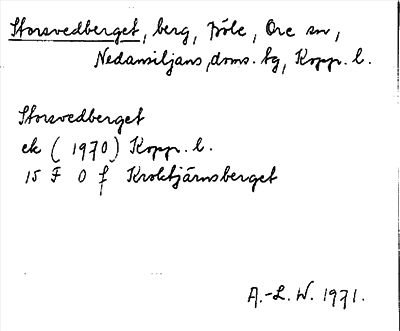 Storsvedberget, berg, Jöle, Ore sn,
Nedansiljans doms. tg, Kopp. l.
Storsvedberget
ek (1970) Kopp. l.
15 F 0 f Kroktjärnsberget
A.-L. W. 1971.